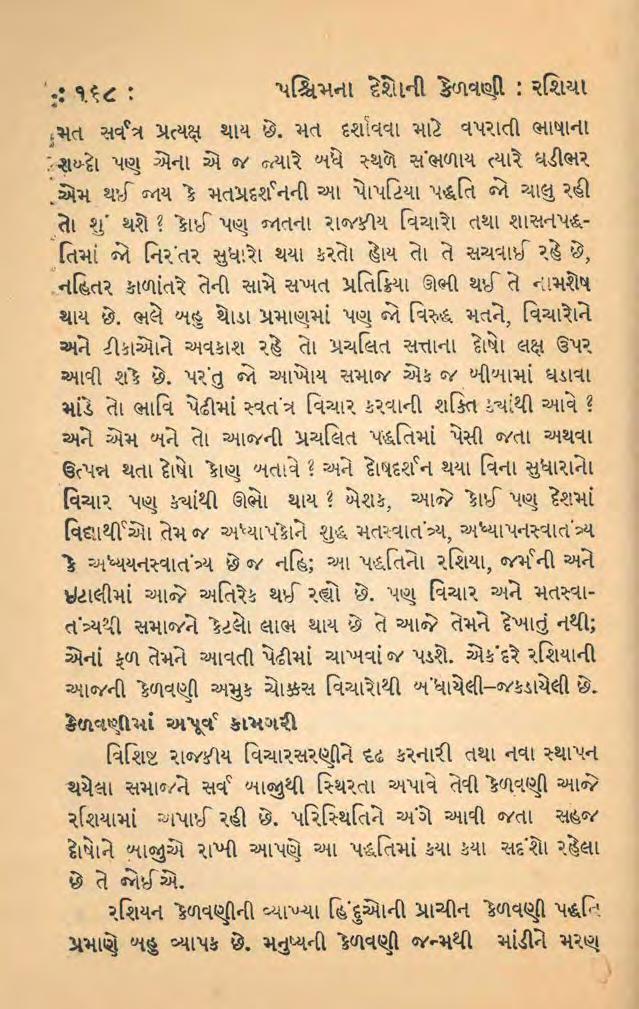 : ૧૬૮ : પશ્ચિમના દેશોની કેળવણી : રશિયા
મત સર્વત્ર પ્રત્યક્ષ થાય છે. મત દર્શાવવા માટે વપરાતી ભાષાના
શબ્દો પણ એના એ જ જ્યારે બધે સ્થળે સંભળાય ત્યારે ઘડીભર
એમ થઈ જાય કે મતપ્રદર્શનની આ પોપટિયા પદ્ધતિ જો ચાલુ રહી
તો શું થશે ? કોઈ પણ જાતના રાજકીય વિચારો તથા શાસનપદ્ધ-
તિમાં જો નિરંતર સુધારો થયા કરતો હોય તો તે સચવાઈ રહે છે,
નહિતર કાળાંતરે તેની સામે સખત પ્રતિક્રિયા ઊભી થઈ તે નામશેષ
થાય છે. ભલે બહુ થોડા પ્રમાણમાં પણ જો વિરુદ્ધ મતને, વિચારોને
અને ટીકાઓને અવકાશ રહે તો પ્રચલિત સત્તાના દોષો લક્ષ ઉપર
આવી શકે છે. પરંતુ જો આખોય સમાજ એક જ બીબામાં ઘડાવા
માંડે તો ભાવિ પેઢીમાં સ્વતંત્ર વિચાર કરવાની શક્તિ ક્યાંથી આવે ?
અને એમ બને તો આજની પ્રચલિત પદ્ધતિમાં પેસી જતા અથવા
ઉત્પન્ન થતા દોષો કોણ બતાવે ? અને દોષદર્શન થયા વિના સુધારાનો
વિચાર પણ ક્યાંથી ઊભો થાય ? બેશક, આજે કોઈ પણ દેશમાં
વિદ્યાર્થીઓ તેમ જ અધ્યાપકોને શુદ્ધ મતસ્વાતંત્ર્ય, અધ્યાપનસ્વાતંત્ર્ય
કે અધ્યયનસ્વાતંત્ર્ય છે જ નહિ; આ પદ્ધતિનો રશિયા, જર્મની અને
ઇટાલીમાં આજે અતિરેક થઈ રહ્યો છે. પણ વિચાર અને મતસ્વા-
તંત્ર્યથી સમાજને કેટલો લાભ થાય છે તે આજે તેમને દેખાતું નથી;
એનાં ફળ તેમને આવતી પેઢીમાં ચાખવાં જ પડશે. એકંદરે રશિયાની
આજની કેળવણી અમુક ચોક્કસ વિચારોથી બંધાયેલી–જકડાયેલી છે.
કેળવણીમાં અપૂર્વ કામગરી
વિશિષ્ટ રાજકીય વિચારસરણીને દૃઢ કરનારી તથા નવા સ્થાપન
થયેલા સમાજને સર્વ બાજુથી સ્થિરતા અપાવે તેવી કેળવણી આજે
રશિયામાં અપાઈ રહી છે. પરિસ્થિતિને અંગે આવી જતા સહજ
દોષોને બાજુએ રાખી આપણે આ પદ્ધતિમાં કયા કયા સદંશો રહેલા
છે તે જોઈએ.
રશિયન કેળવણીની વ્યાખ્યા હિંદુઓની પ્રાચીન કેળવણી પદ્ધતિ
પ્રમાણે બહુ વ્યાપક છે. મનુષ્યની કેળવણી જન્મથી માંડીને મરણ